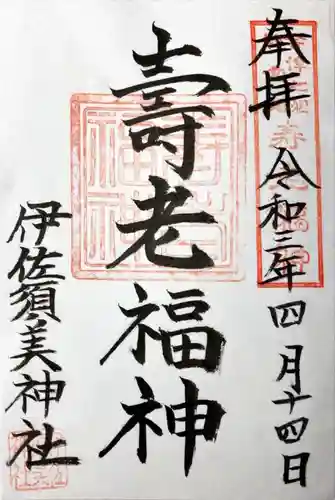 奉拝
令和二年四月十四日
壽老福神
伊佐須美神社